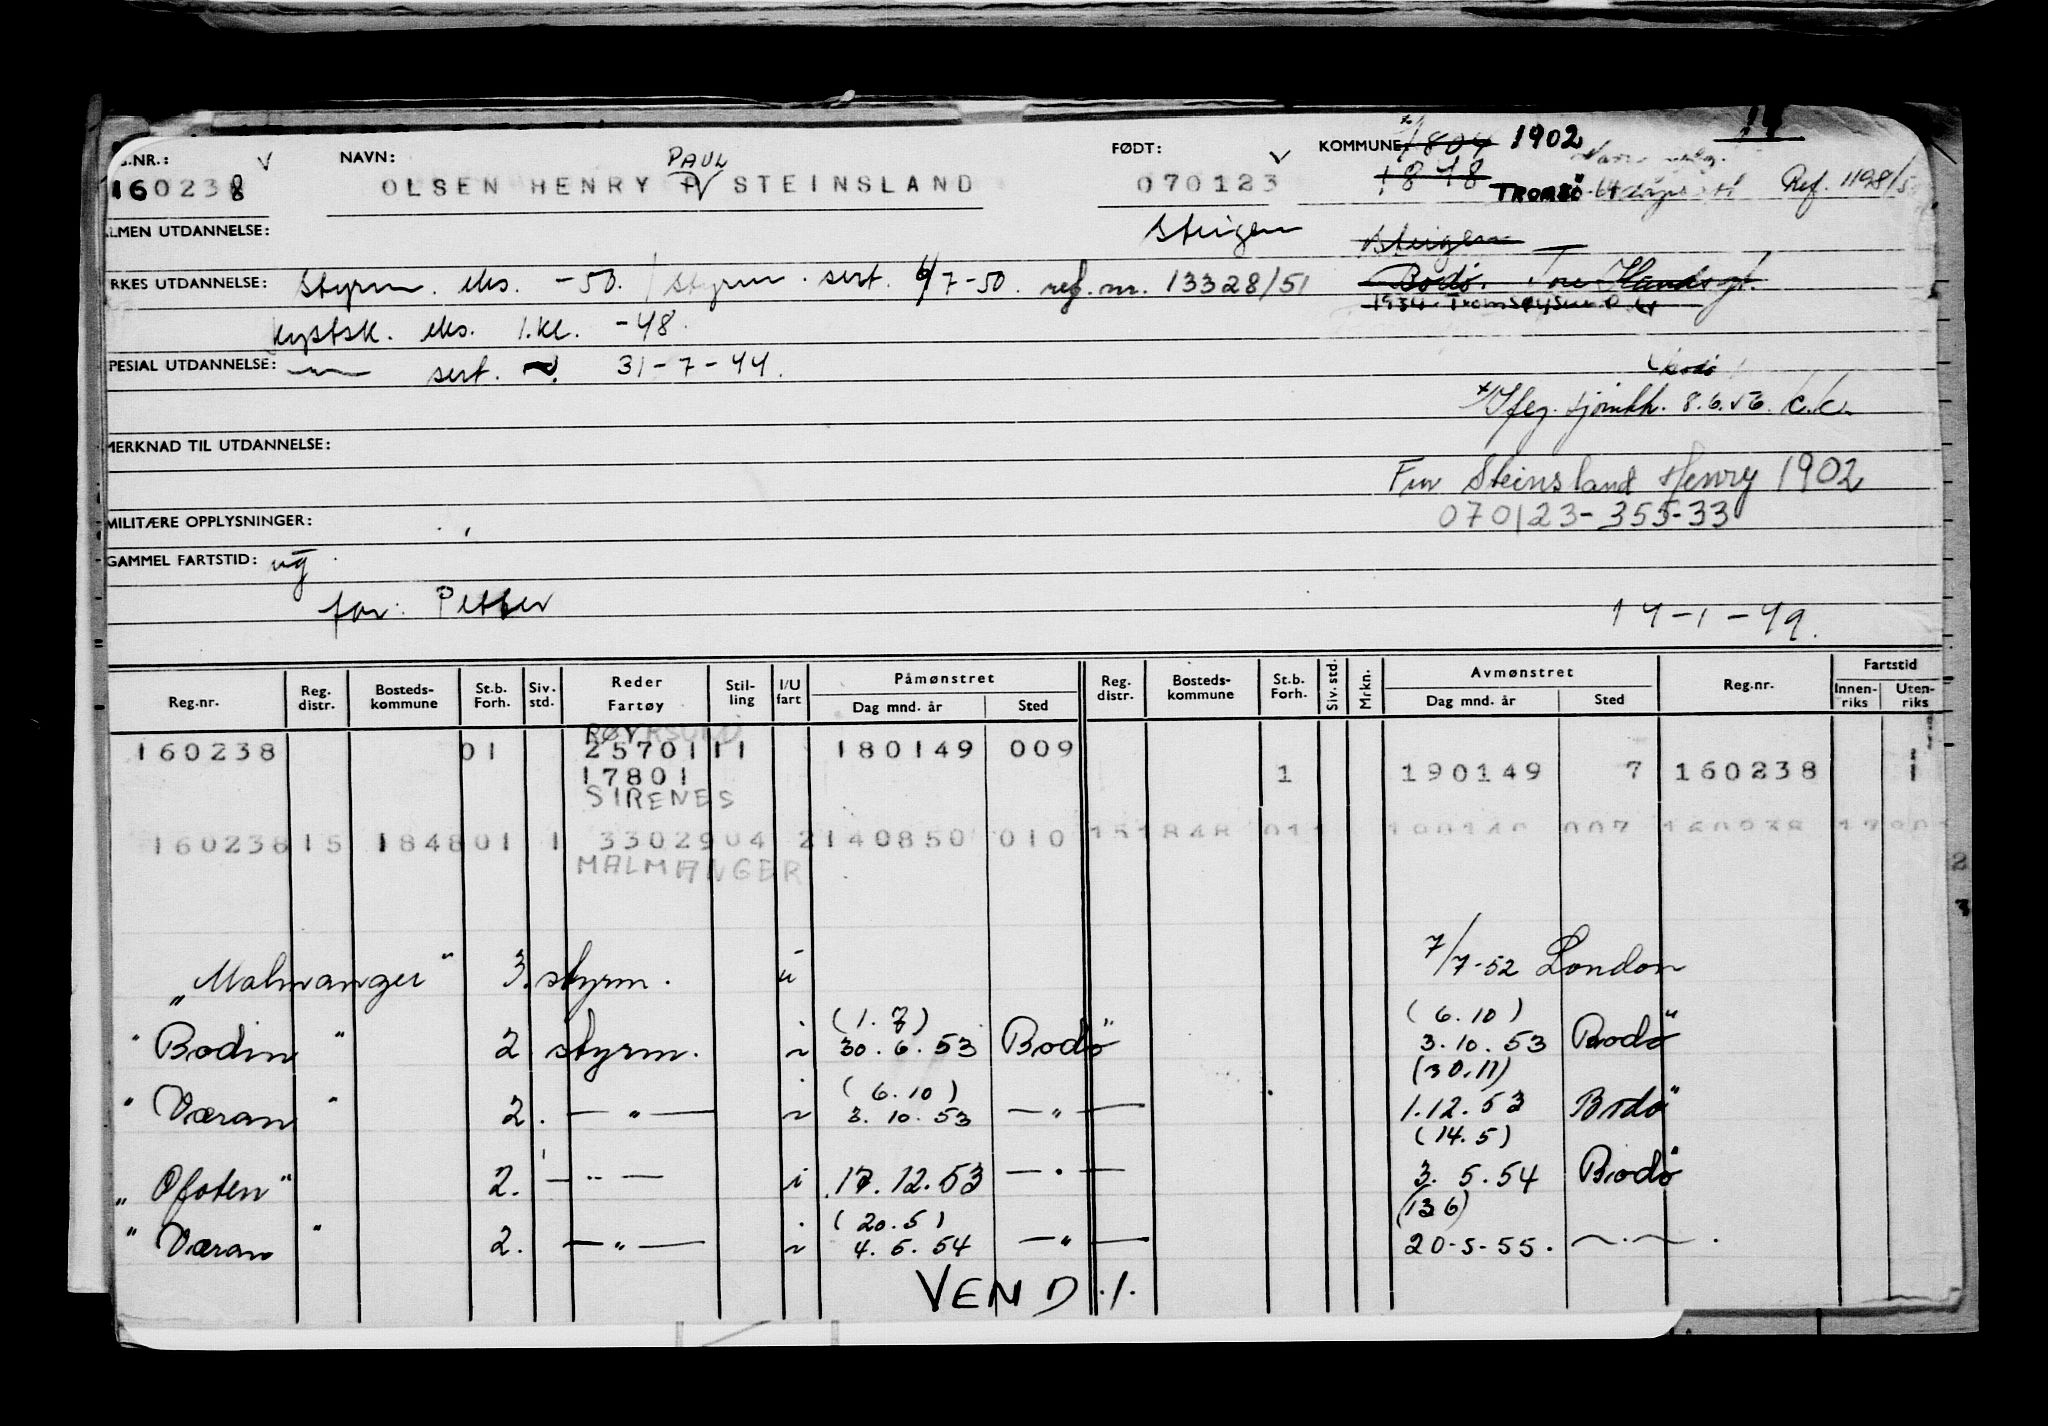 .NR.: V NAVN: PAUL FØDT: V KOMMUNE: 1804 1902
160238 OLSEN HENRY P STEINSLAND 070123 1848 TROMSØ Ref. 1198/5
LMEN UTDANNELSE: Steigen Steigen
RKES UTDANNELSE: Styrm. eks. -50. / Styrm. sert. 6/7-50. ref. nr. 13328/51 Bodø.
Kystsk. eks. 1.kl. -48.
PESIAL UTDANNELSE: sert. 31-7-44. Bodø
8.6.56.
MERKNAD TIL UTDANNELSE:
Fnr Steinsland Henry 1902
MILITÆRE OPPLYSNINGER: 070123-355-33
GAMMEL FARTSTID: ug
far: Petter 14-1-49.
Reg.nr. Reg. distr. Bosteds- kommune St.b. Forh. Siv. std. Reder Fartøy Stil- ling I/U fart Påmønstret Dag mnd. år Sted Reg. distr. Bosteds- kommune St.b. Forh. Siv. std. Mrkn. Avmønstret Dag mnd. år Sted Reg.nr. Fartstid Innen- riks Uten- riks
RØYRSUND
160238 01 25701 11 180149 009
17801 1 190149 7 160238 1
SIRENES
160238 15 1848 01 1 33029 04 2 140850 010
MALMANGER
"Malmanger" 3. styrm. u 7/7-52 London
(1.7) (6.10)
"Bodin" 2 styrm. i 30.6.53 Bodø 3.10.53 Bodø
(6.10) (30.11)
"Væran" 2. — " — i 3.10.53 — " — 1.12.53 Bodø
(14.5)
"Ofoten" 2. — " — i 17.12.53 — " — 3.5.54 Bodø
(20.5) (136)
"Væran" 2. — " — i 4.5.54 — " — 20-5-55.
VEND ./.